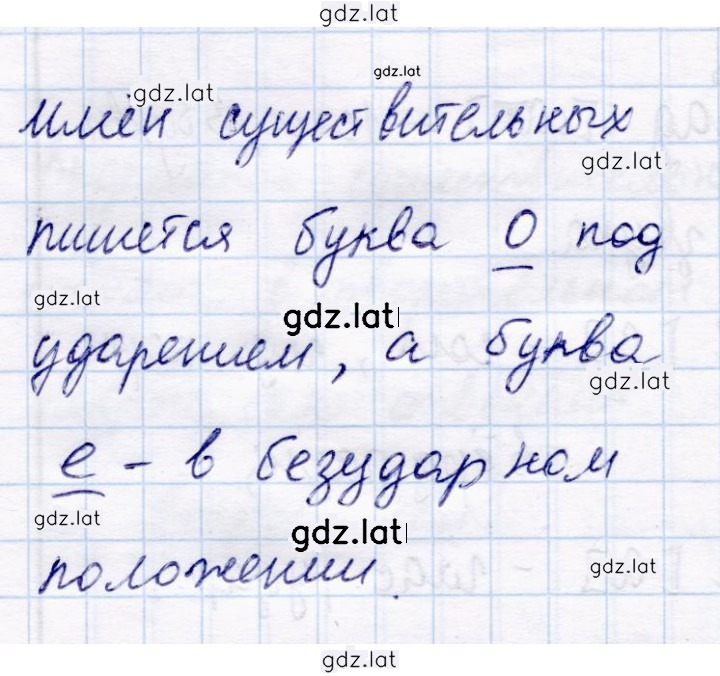 gdz.lat
gdz.lat
gdz.lat
имён существительных
gdz.lat
пишется буква о под
gdz.lat
gdz.lat
ударением, а буква
gdz.lat
е - в безударном
gdz.lat
gdz.lat
положении.
gdz.lat
gdz.lat